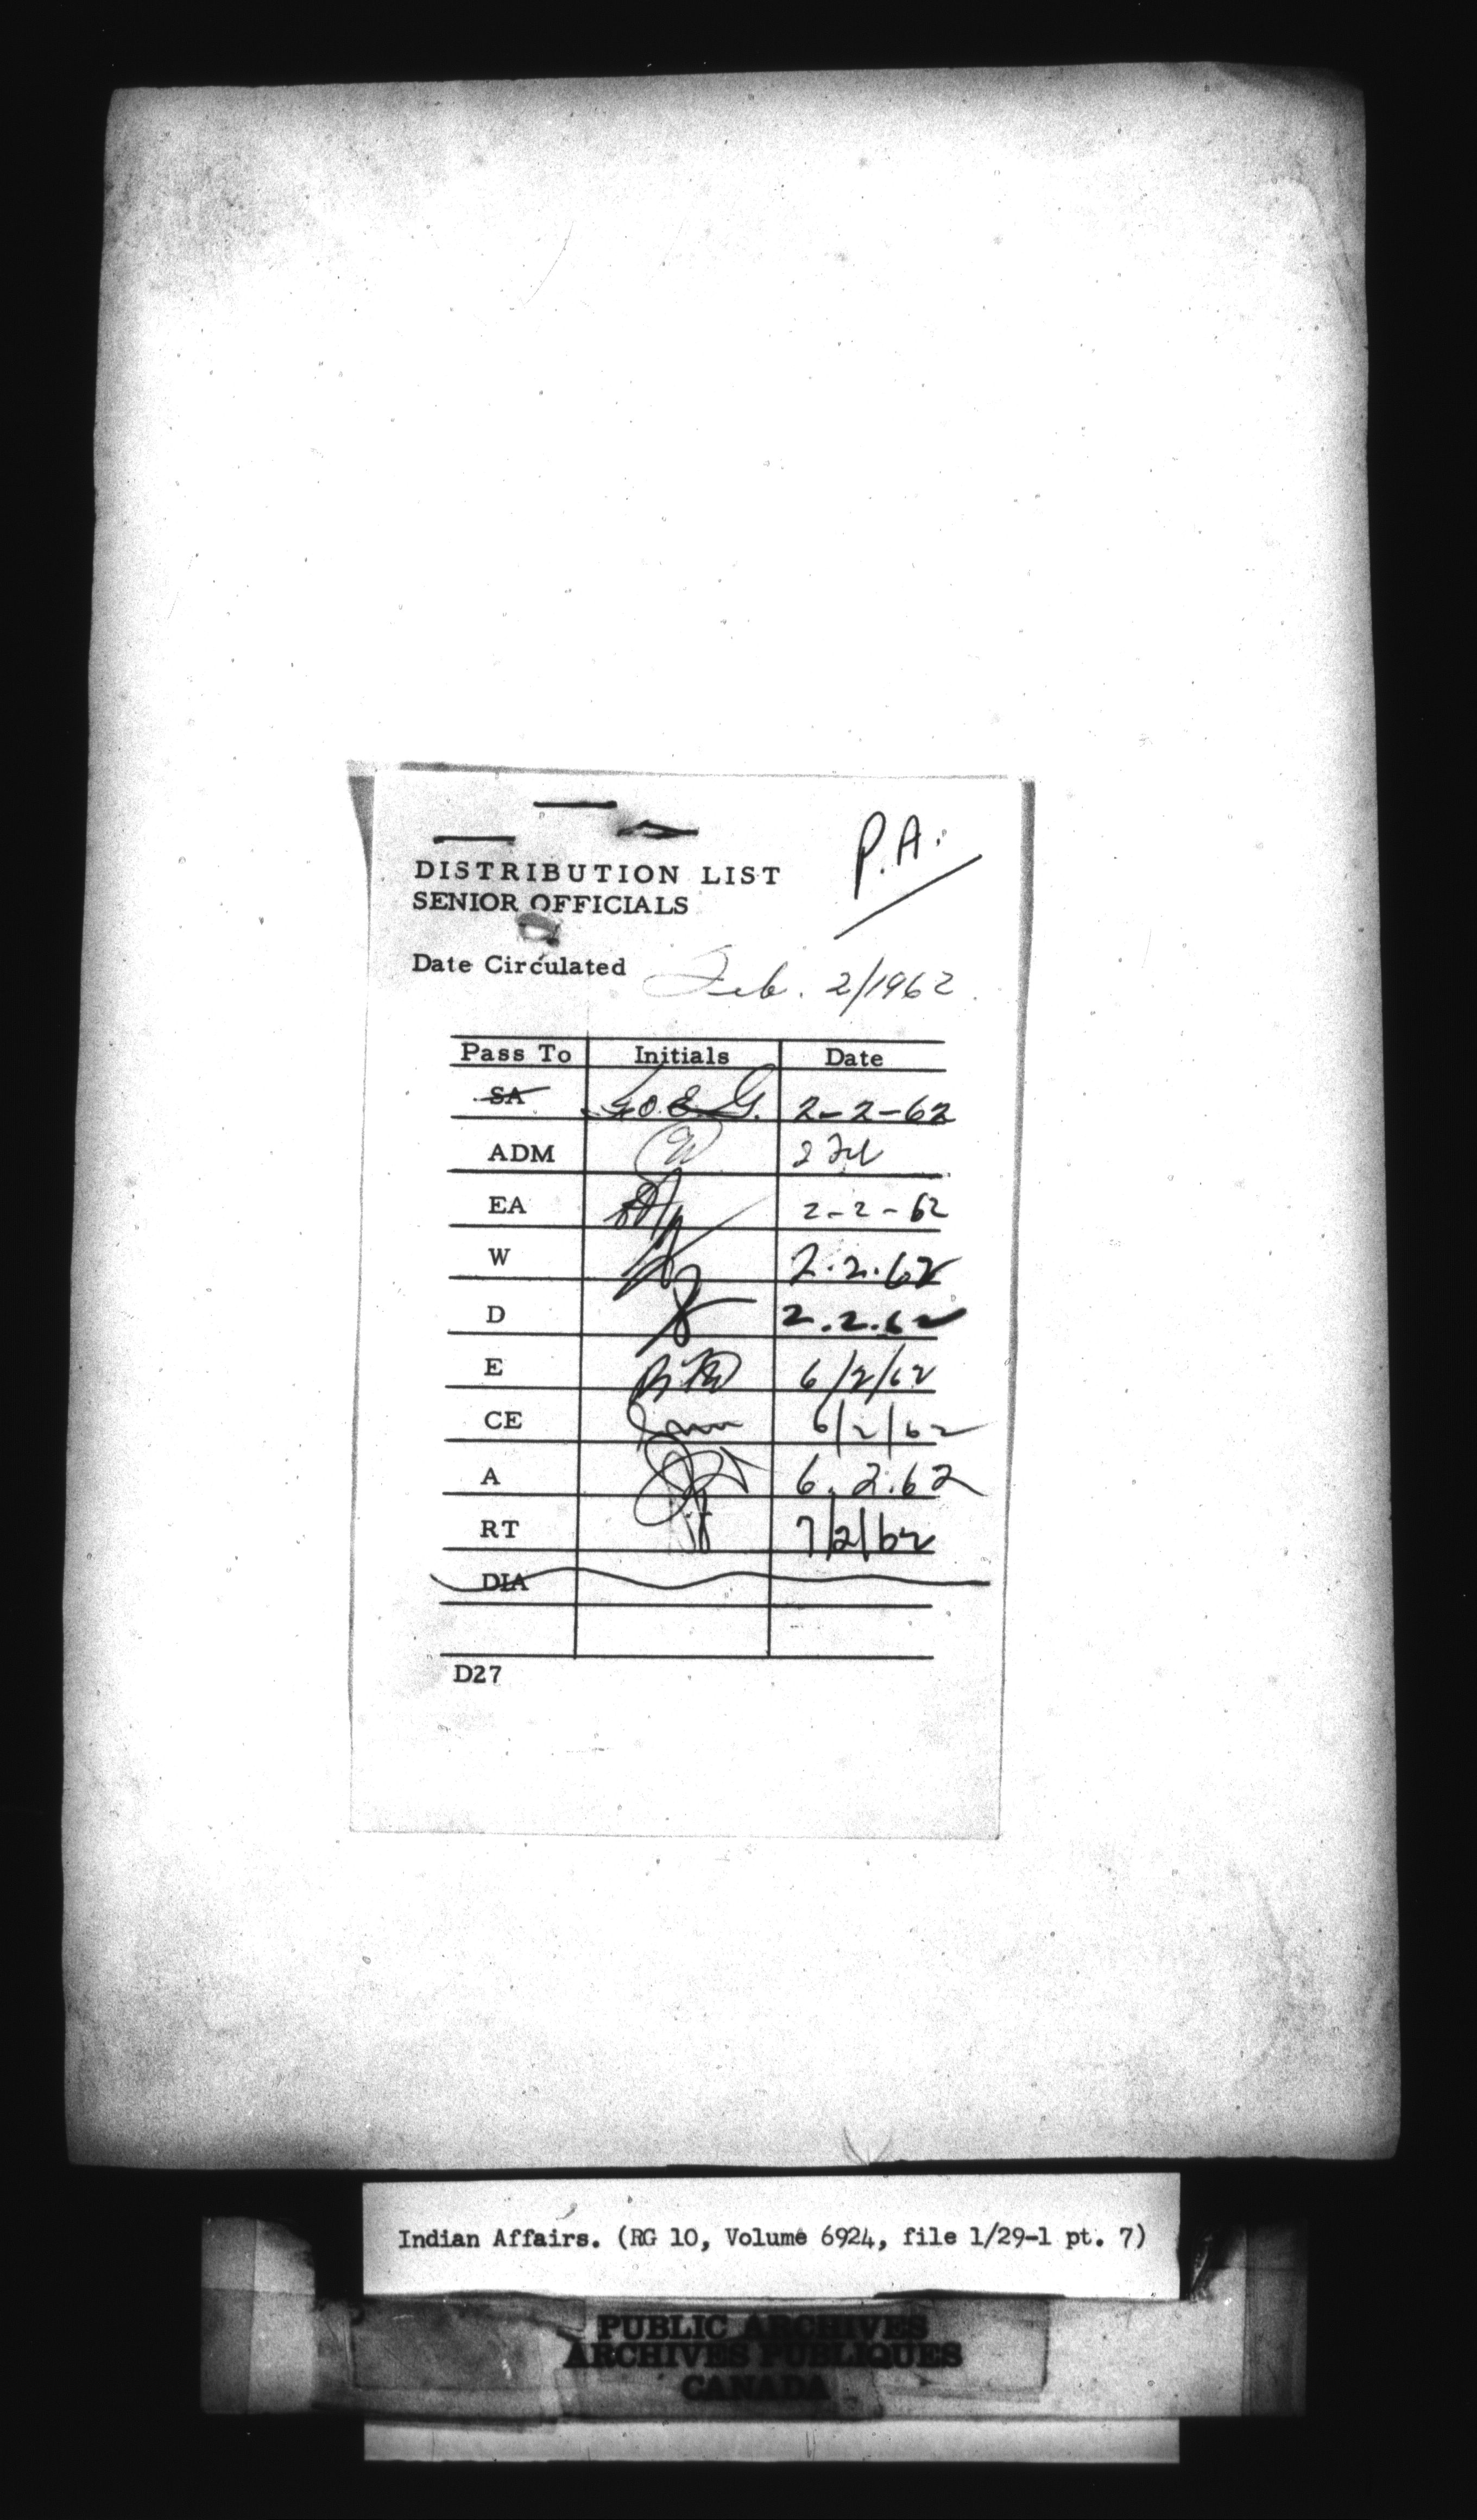 P.A.
DISTRIBUTION LIST
SENIOR OFFICIALS
Date Circulated Feb. 2/1962
Pass To Initials Date
SA G. 2-2-62
ADM 2
EA 2-2-62
W 2.2.62
D 2.2.62
E 6/2/62
CE 6/2/62
A 6.2.62
RT 7/2/62
DIA
D27
Indian Affairs. (RG 10, Volume 6924, file 1/29-1 pt. 7)
PUBLIC ARCHIVES
ARCHIVES PUBLIQUES
CANADA